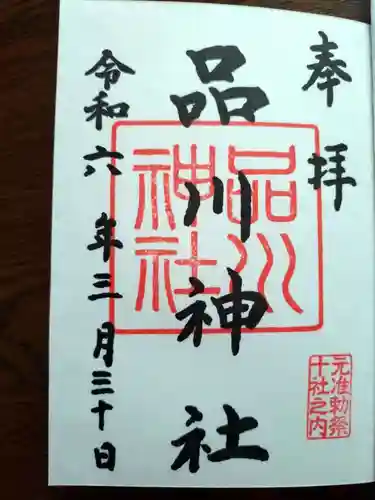 奉拝
品川神社
品川神社
令和六年三月三十日
元准勅祭
十社之内